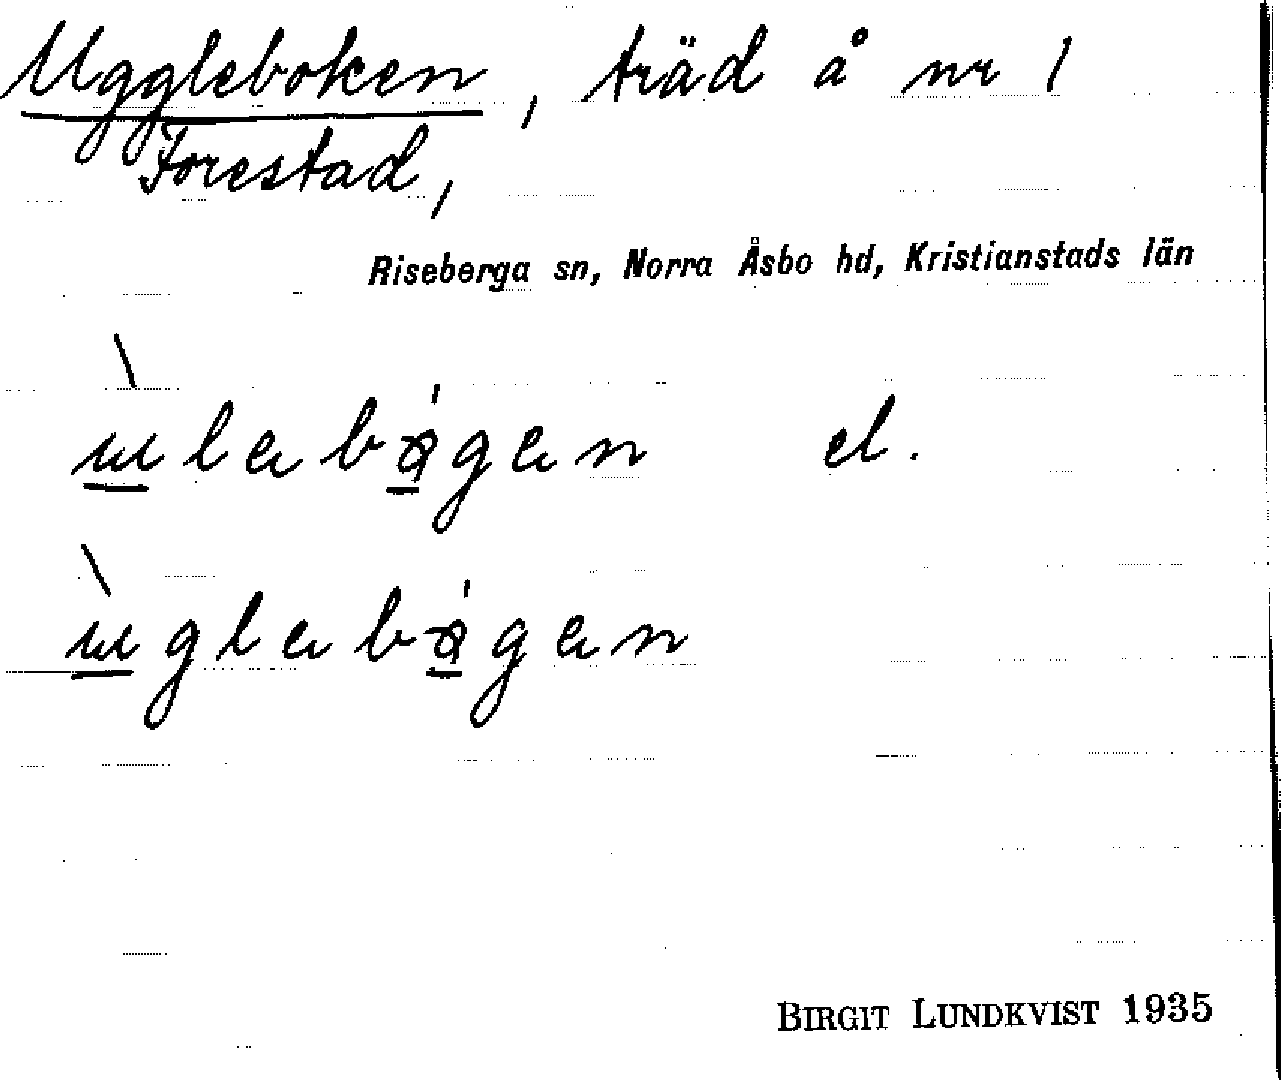 Uggleboken, träd å nr 1
Forestad,
Riseberga sn, Norra Åsbo hd, Kristianstads län
ùlebǿgen el.
ùglebǿgen
BIRGIT LUNDKVIST 1935